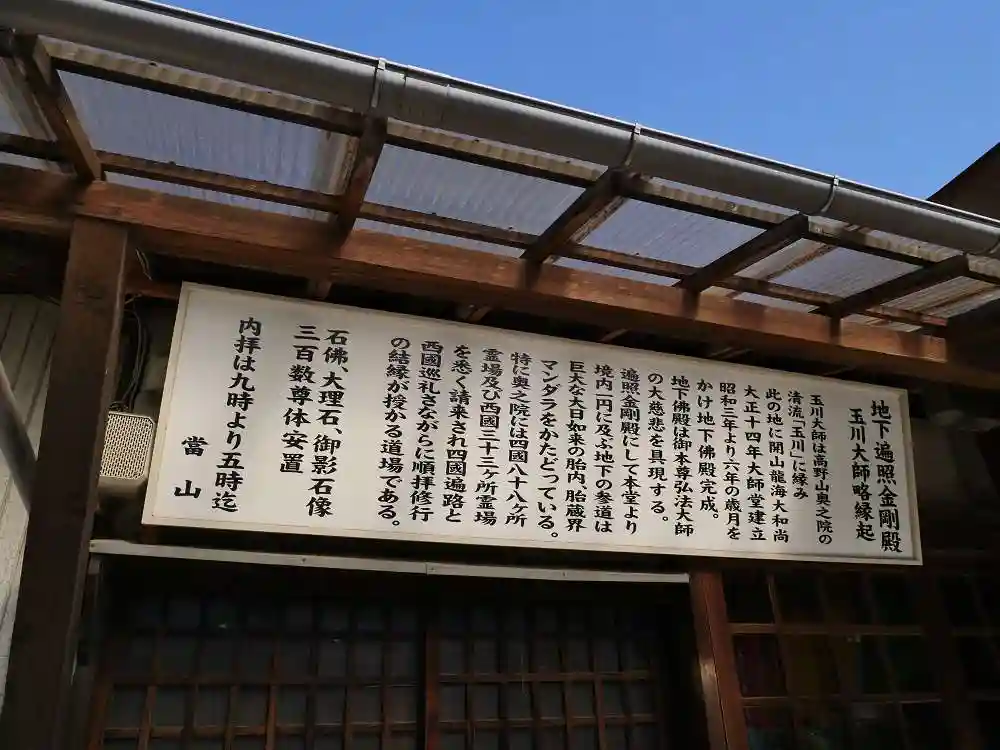 地下遍照金剛殿
玉川大師略縁起
玉川大師は高野山奥之院の
清流「玉川」に縁み
此の地に開山龍海大和尚
大正十四年大師堂建立
昭和三年より六年の歳月を
かけ地下佛殿完成。
地下佛殿は御本尊弘法大師
の大慈悲を具現する。
遍照金剛殿にして本堂より
境内一円に及ぶ地下の参道は
巨大な大日如来の胎内、胎蔵界
マンダラをかたどっている。
特に奥之院には四國八十八ヶ所
霊場及び西國三十三ヶ所霊場
を悉く請来され四國遍路と
西國巡礼さながらに順拝修行
の結縁が授かる道場である。
石佛、大理石、御影石像
三百数尊体安置
内拝は九時より五時迄
當山